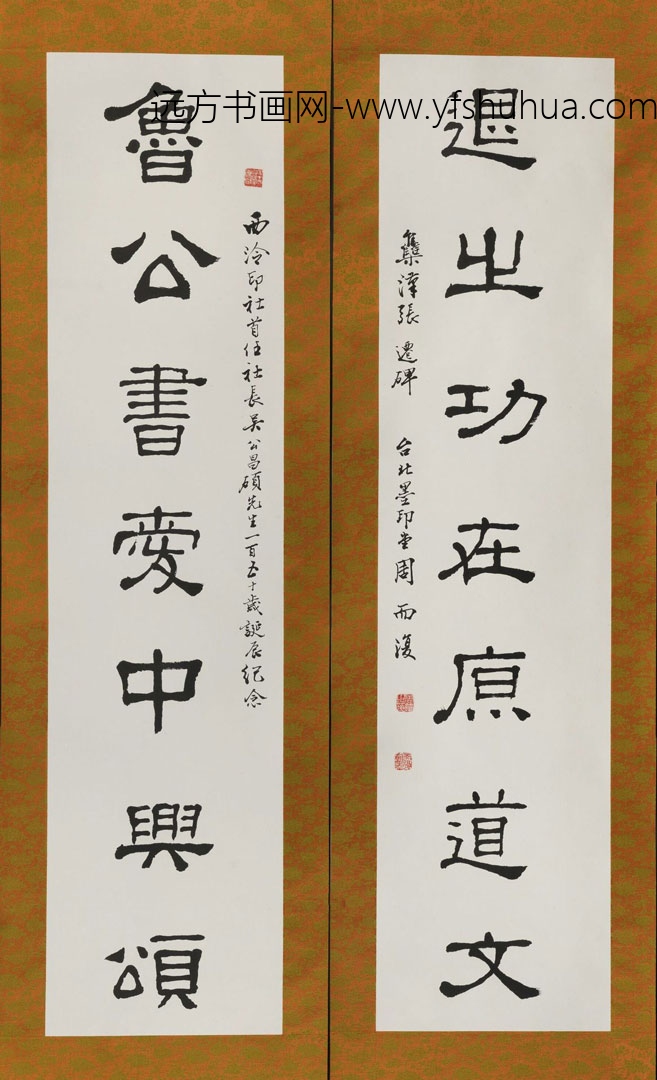 远方书画网-www.yfshuhua.com
魯公書愛中興頌
西泠印社首任社長吳公昌碩先生一百五十歲誕辰紀念
退之功在原道文
集漢張遷碑
台北墨印堂周而復